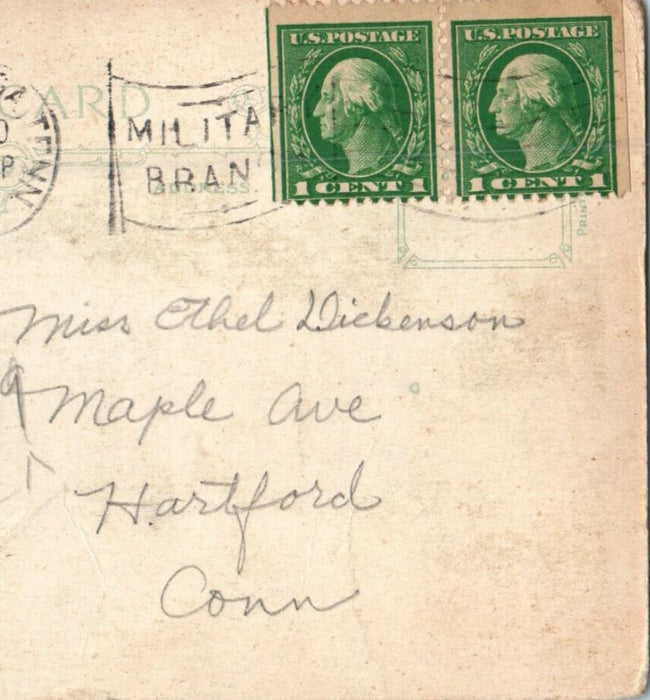 CARD
TENN
P
MILITA
BRAN
ADDRESS
U.S.POSTAGE
1 CENT 1
U.S.POSTAGE
1 CENT 1
PRINT
Miss Ethel Dickenson
Maple Ave
Hartford
Conn